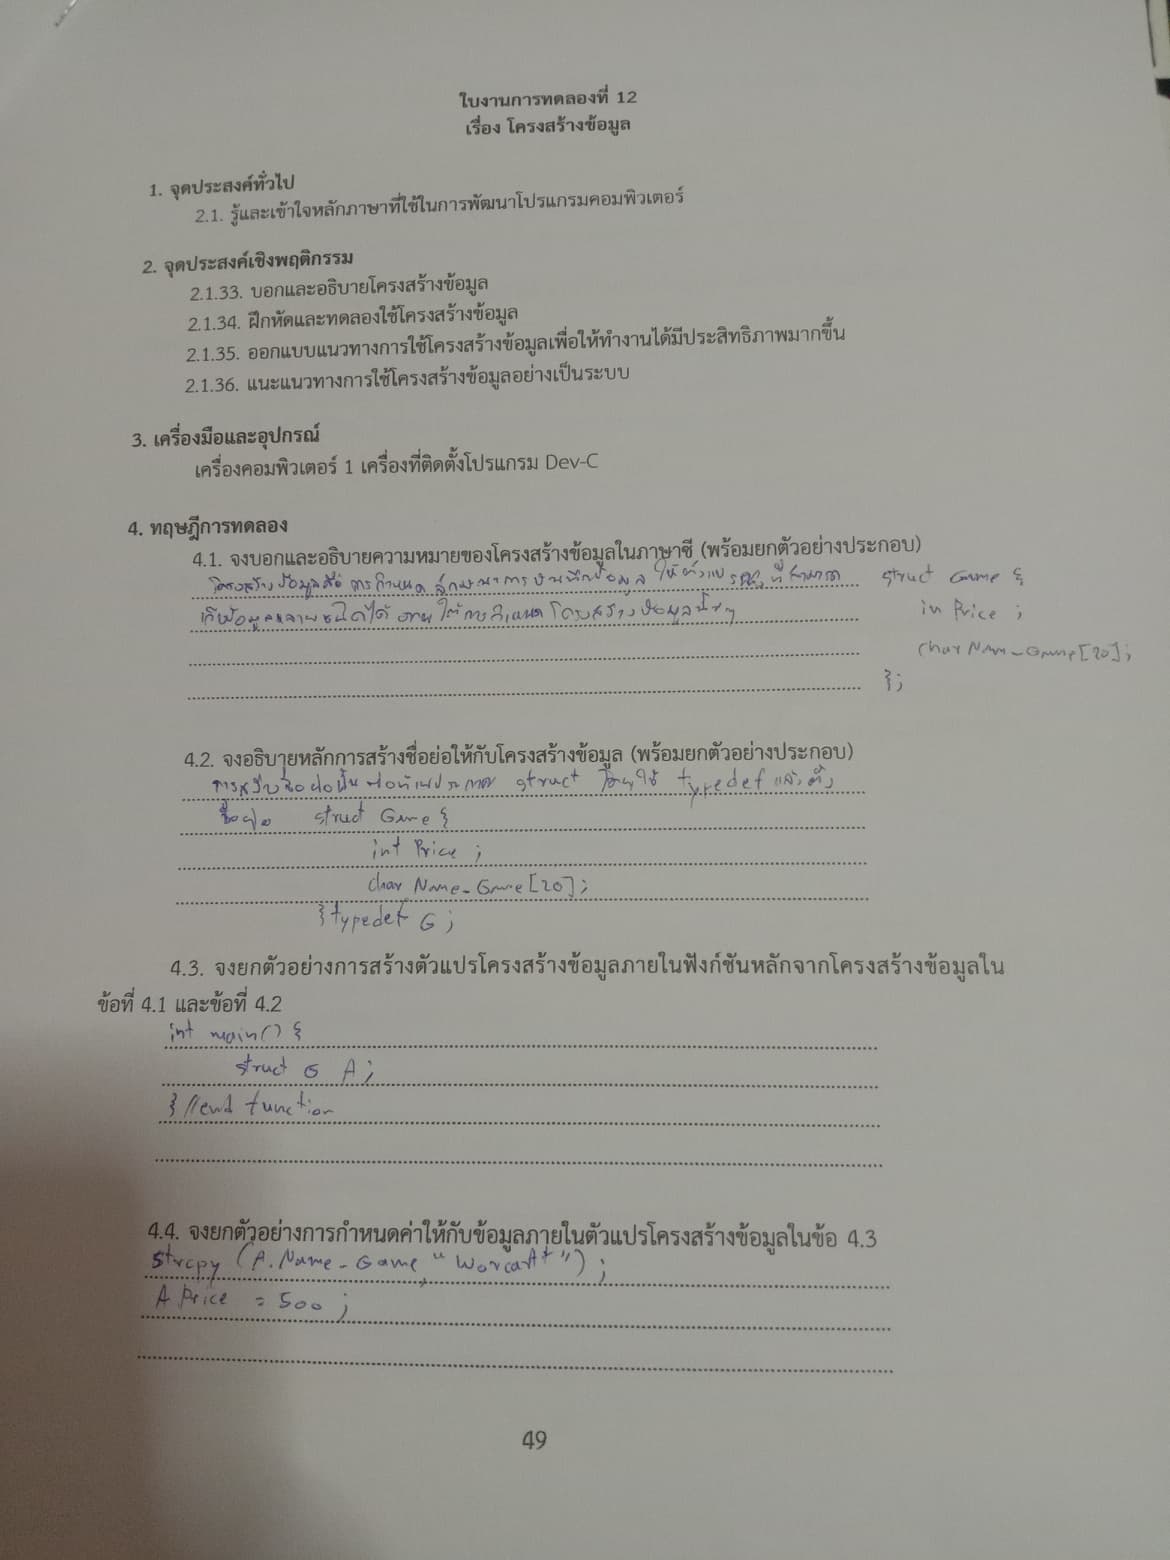 ใบงานการทดลองที่ 12
เรื่อง โครงสร้างข้อมูล
1. จุดประสงค์ทั่วไป
2.1. รู้และเข้าใจหลักภาษาที่ใช้ในการพัฒนาโปรแกรมคอมพิวเตอร์
2. จุดประสงค์เชิงพฤติกรรม
2.1.33. บอกและอธิบายโครงสร้างข้อมูล
2.1.34. ฝึกหัดและทดลองใช้โครงสร้างข้อมูล
2.1.35. ออกแบบแนวทางการใช้โครงสร้างข้อมูลเพื่อให้ทำงานได้มีประสิทธิภาพมากขึ้น
2.1.36. แนะแนวทางการใช้โครงสร้างข้อมูลอย่างเป็นระบบ
3. เครื่องมือและอุปกรณ์
เครื่องคอมพิวเตอร์ 1 เครื่องที่ติดตั้งโปรแกรม Dev-C
4. ทฤษฎีการทดลอง
4.1. จงบอกและอธิบายความหมายของโครงสร้างข้อมูลในภาษาซี (พร้อมยกตัวอย่างประกอบ)
โครงสร้างข้อมูลคือ การกำหนด ลักษณะการ ข้อมูล ให้ตัวแปร ที่สามารถ
เก็บข้อมูลหลายชนิดได้ ภายใต้การกำหนดโครงสร้างข้อมูลนั้นๆ
struct Game {
in Price ;
char Name_Game[20];
};
4.2. จงอธิบายหลักการสร้างชื่อย่อให้กับโครงสร้างข้อมูล (พร้อมยกตัวอย่างประกอบ)
การสร้างชื่อย่อนั้น struct โดยใช้ typedef แล้วตั้ง
ชื่อย่อ struct Game {
int Price ;
char Name_Game[20];
} typedef G ;
4.3. จงยกตัวอย่างการสร้างตัวแปรโครงสร้างข้อมูลภายในฟังก์ชันหลักจากโครงสร้างข้อมูลใน
ข้อที่ 4.1 และข้อที่ 4.2
int main() {
struct G A;
} //end function
4.4. จงยกตัวอย่างการกำหนดค่าให้กับข้อมูลภายในตัวแปรโครงสร้างข้อมูลในข้อ 4.3
strcpy (A.Name_Game, "Worcaft") ;
A Price = 500 ;
49